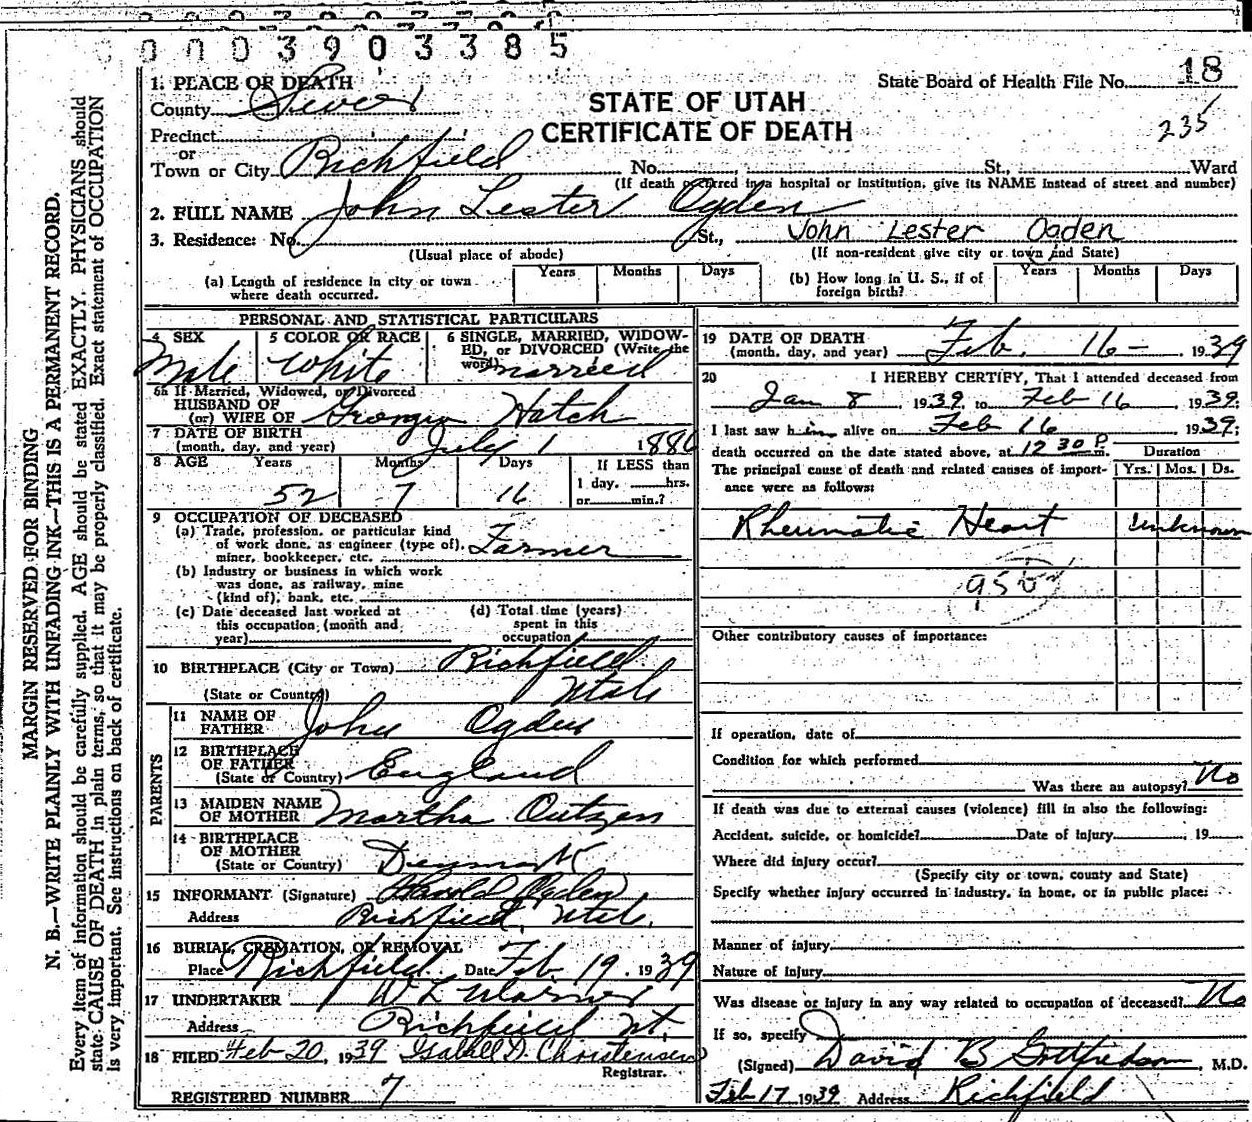 0003903385
State Board of Health File No. 18
235
STATE OF UTAH
CERTIFICATE OF DEATH
1. PLACE OF DEATH
County Sevier
Precinct
or
Town or City Richfield No. St., Ward
(If death occurred in a hospital or institution, give its NAME instead of street and number)
2. FULL NAME John Lester Ogden
3. Residence: No. St., John Lester Ogden
(Usual place of abode) (If non-resident give city or town and State)
(a) Length of residence in city or town where death occurred. Years Months Days
(b) How long in U. S., if of foreign birth? Years Months Days
PERSONAL AND STATISTICAL PARTICULARS
4 SEX Male
5 COLOR OR RACE White
6 SINGLE, MARRIED, WIDOWED, or DIVORCED (Write the word) Married
6a If Married, Widowed, or Divorced
HUSBAND OF
(or) WIFE OF Georgia Hatch
7 DATE OF BIRTH
(month, day, and year) July 1 1886
8 AGE Years Months Days If LESS than
1 day, hrs.
or min.?
52 7 16
9 OCCUPATION OF DECEASED
(a) Trade, profession, or particular kind
of work done, as engineer (type of),
miner, bookkeeper, etc. Farmer
(b) Industry or business in which work
was done, as railway, mine
(kind of), bank, etc.
(c) Date deceased last worked at
this occupation, (month and
year)
(d) Total time (years)
spent in this
occupation
10 BIRTHPLACE (City or Town) Richfield
(State or Country) Utah
PARENTS
11 NAME OF
FATHER John Ogden
12 BIRTHPLACE
OF FATHER
(State or Country) England
13 MAIDEN NAME
OF MOTHER Martha Outzen
14 BIRTHPLACE
OF MOTHER
(State or Country) Denmark
15 INFORMANT (Signature) Harold Ogden
Address Richfield, Utah.
16 BURIAL, CREMATION, OR REMOVAL
Place Richfield Date Feb. 19, 1939
17 UNDERTAKER W L Warner
Address Richfield Ut.
18 FILED Feb 20, 1939 Isabell D. Christensen
Registrar.
REGISTERED NUMBER 7
19 DATE OF DEATH
(month, day, and year) Feb. 16- 1939
20 I HEREBY CERTIFY, That I attended deceased from
Jan 8, 1939, to Feb 16, 1939;
I last saw him alive on Feb 16 1939;
death occurred on the date stated above, at 12 30 P m.
The principal cause of death and related causes of importance were as follows:
Duration
Yrs. Mos. Ds.
Rheumatic Heart Unknown
Other contributory causes of importance:
If operation, date of
Condition for which performed
Was there an autopsy? No
If death was due to external causes (violence) fill in also the following:
Accident, suicide, or homicide? Date of injury , 19
Where did injury occur?
(Specify city or town, county and State)
Specify whether injury occurred in industry, in home, or in public place:
Manner of injury
Nature of injury
Was disease or injury in any way related to occupation of deceased? No
If so, specify
(Signed) David B Gottfredson, M.D.
Feb 17 1939 Address Richfield
MARGIN RESERVED FOR BINDING
N. B.—WRITE PLAINLY WITH UNFADING INK—THIS IS A PERMANENT RECORD.
Every item of information should be carefully supplied. AGE should be stated EXACTLY. PHYSICIANS should
state CAUSE OF DEATH in plain terms, so that it may be properly classified. Exact statement of OCCUPATION
is very important. See instructions on back of certificate.